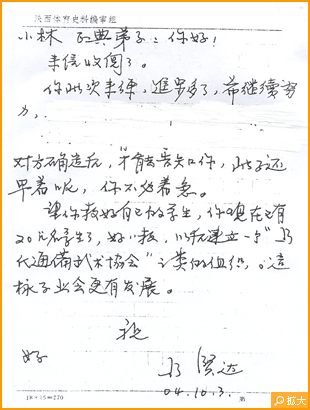 陕西体育史料编审组
小林 正典弟子：你好！
来信收阅了。
你此次来练，進步多了，希继续努
力，
对方确造访，才能告知你，此事还
早着呢，你不必着急。
望你教好自己的学生，你现在已有
20几名学生了，好好教，以后建立一个"马
氏通備武术協会"之类的组织。这
样事业会更有发展。
祝
好
马贤达
04.10.3.
18×15=270
第
拡大